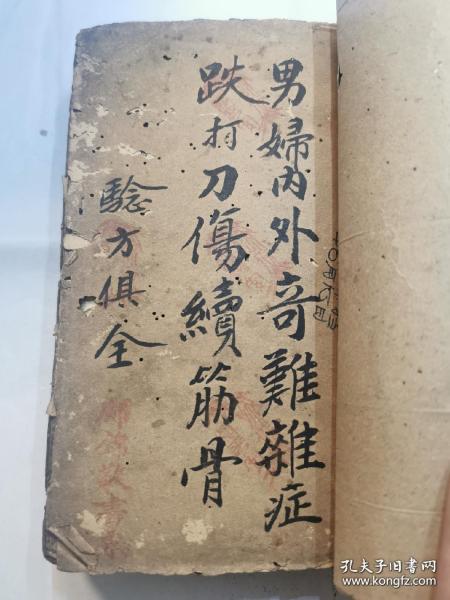 男婦內外奇難雜症
跌打刀傷續筋骨
騐方俱全
孔夫子旧书网
www.kongfz.com